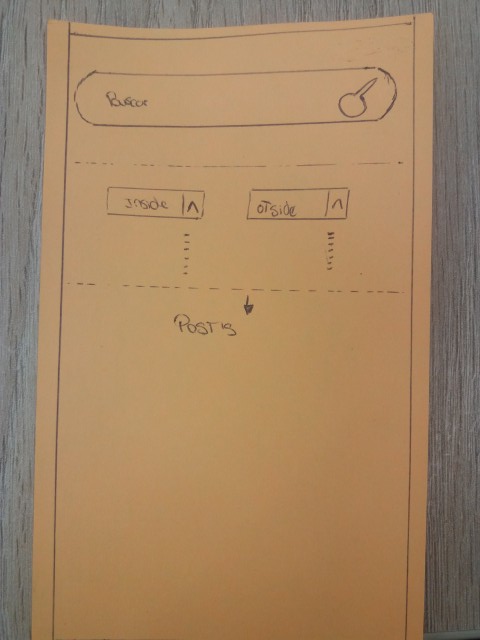 Buscar
Inside
otside
Postis